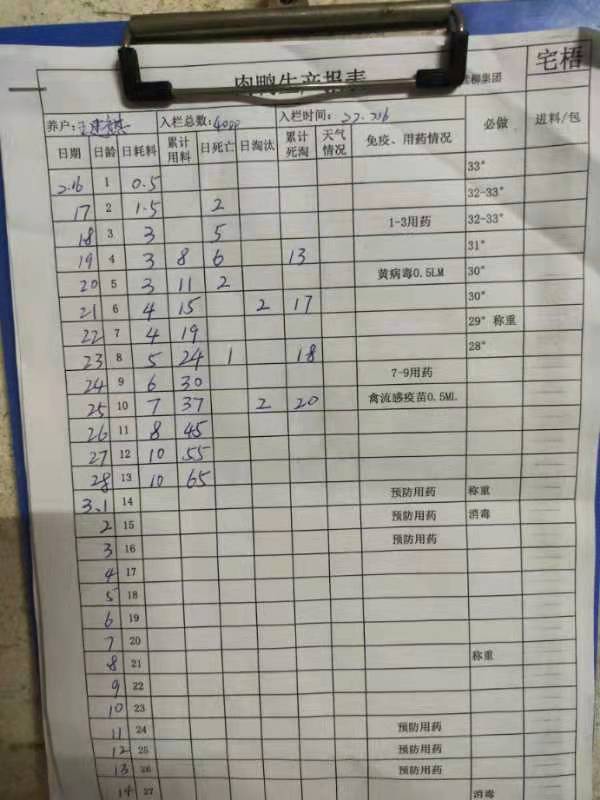 肉鸭生产报表 柳集团 宅梧
养户: 入栏总数: 4000 入栏时间: 22.2.16 必做 进料/包
日期 日龄 日耗料 累计用料 日死亡 日淘汰 累计死淘 天气情况 免疫、用药情况
33°
2.16 1 0.5
32-33°
17 2 1.5 2
1-3用药 32-33°
18 3 3 5
31°
19 4 3 8 6 13
黄病毒0.5LM 30°
20 5 3 11 2
30°
21 6 4 15 2 17
29° 称重
22 7 4 19
28°
23 8 5 24 1 18
7-9用药
24 9 6 30
25 10 7 37 2 20 禽流感疫苗0.5ML
26 11 8 45
27 12 10 55
28 13 10 65
3.1 14 预防用药 称重
2 15 预防用药 消毒
3 16 预防用药
4 17
5 18
6 19
7 20
8 21 称重
9 22
10 23
11 24 预防用药
12 25 预防用药
13 26 预防用药
14 27 消毒